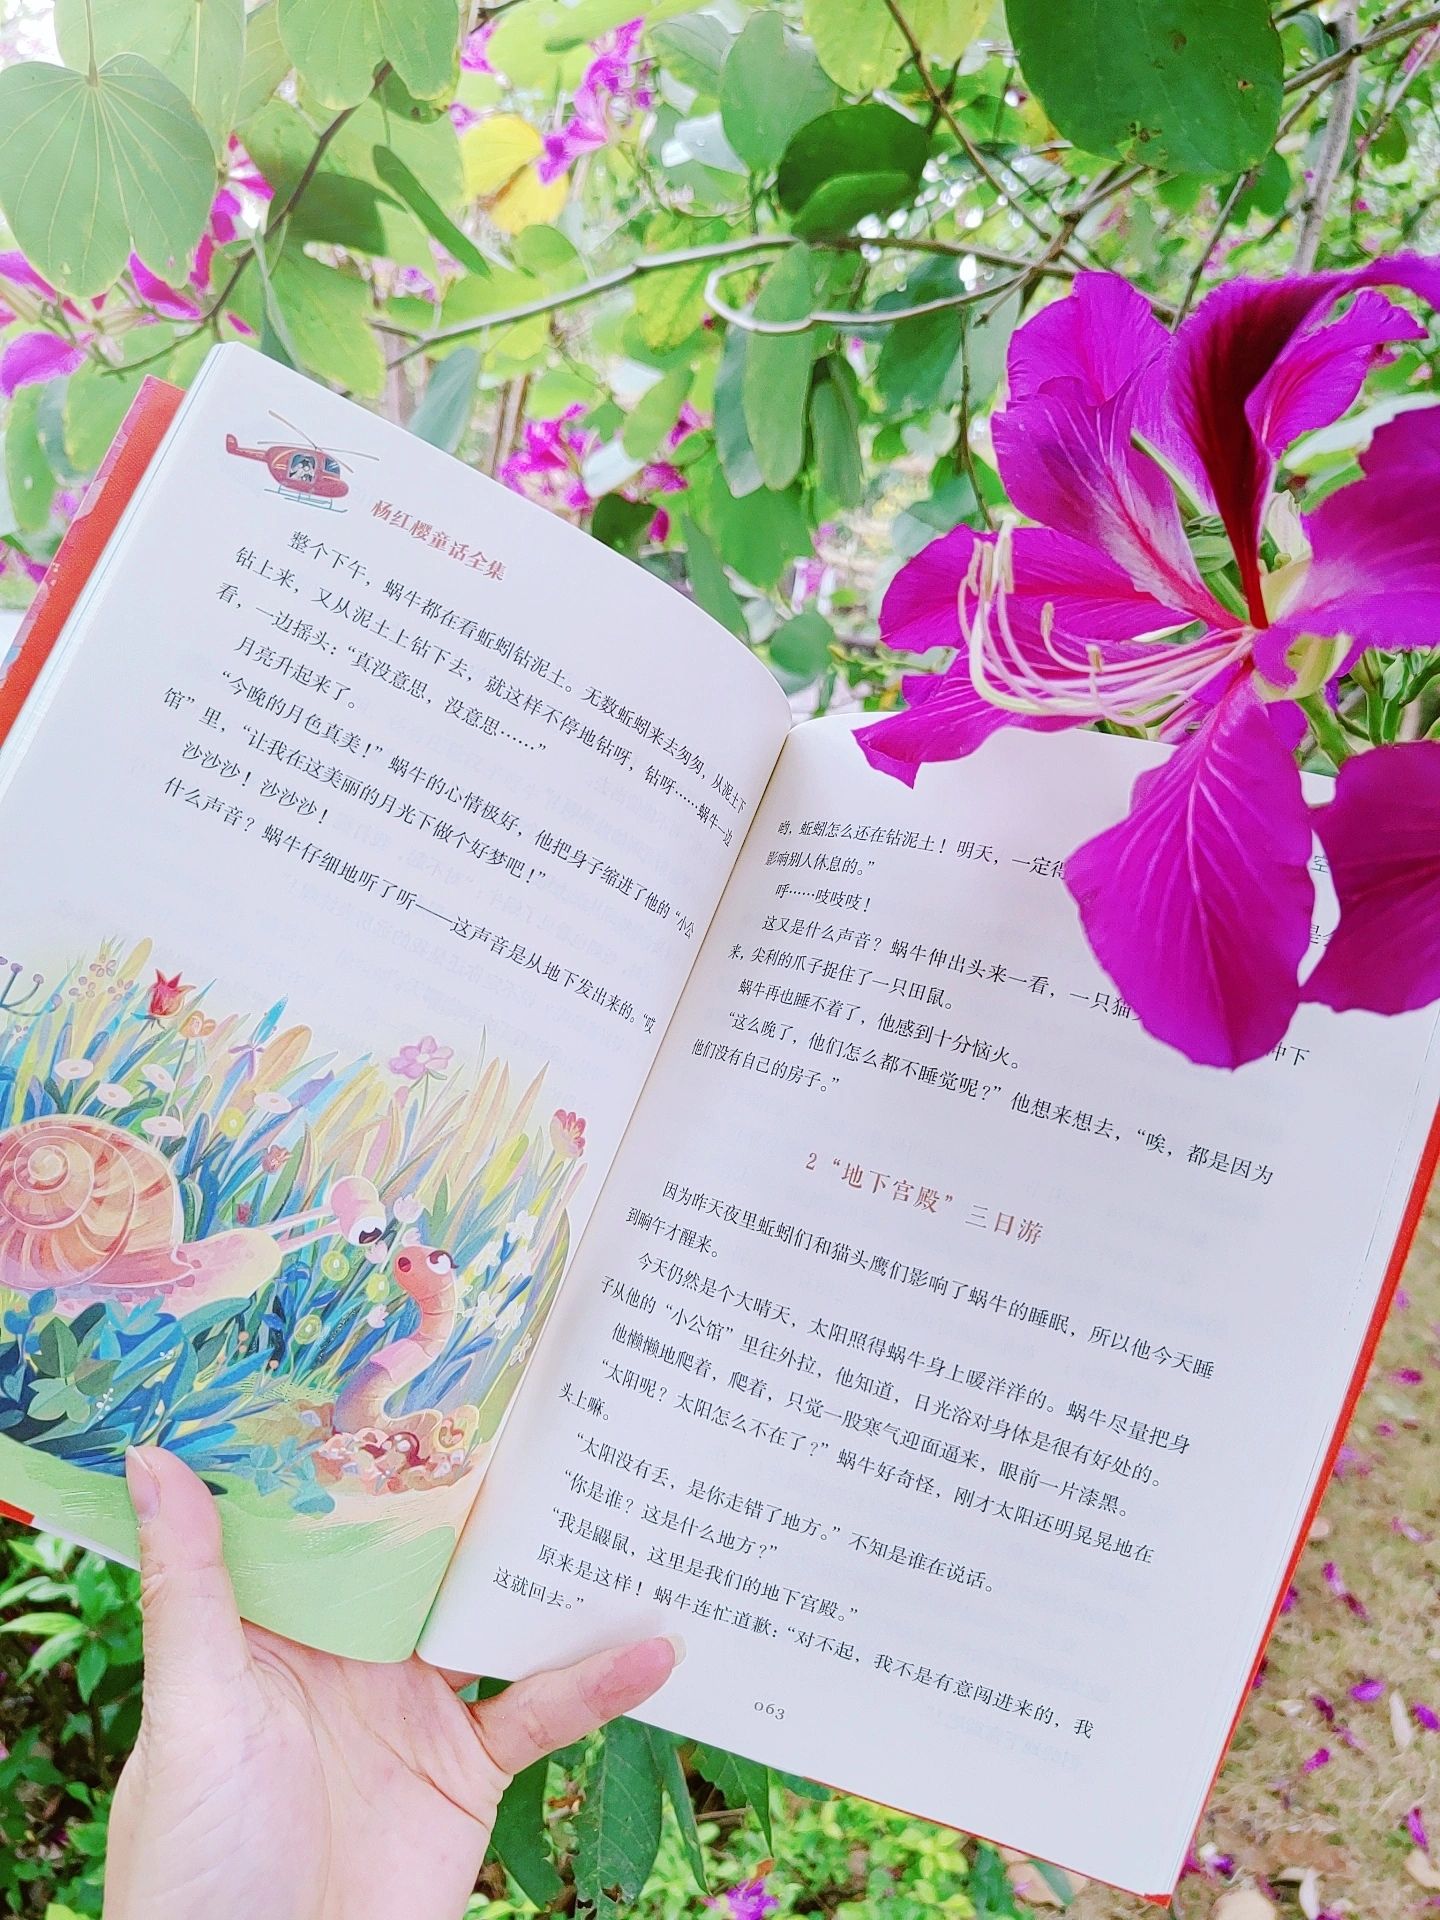 杨红樱童话全集
整个下午，蜗牛都在看蚯蚓钻泥土。无数蚯蚓来去匆匆，从泥土下
钻上来，又从泥土上钻下去，就这样不停地钻呀，钻呀……蜗牛一边
看，一边摇头：“真没意思，没意思……”
月亮升起来了。
“今晚的月色真美！”蜗牛的心情极好，他把身子缩进了他的“小公
馆”里，“让我在这美丽的月光下做个好梦吧！”
沙沙沙！沙沙沙！
什么声音？蜗牛仔细地听了听——这声音是从地下发出来的。“哎
哟，蚯蚓怎么还在钻泥土！明天，一定得
影响别人休息的。”
呼……吱吱吱！
这又是什么声音？蜗牛伸出头来一看，一只猫 冲下
来，尖利的爪子捉住了一只田鼠。
蜗牛再也睡不着了，他感到十分恼火。
“这么晚了，他们怎么都不睡觉呢？”他想来想去，“唉，都是因为
他们没有自己的房子。”
2 “地下宫殿”三日游
因为昨天夜里蚯蚓们和猫头鹰们影响了蜗牛的睡眠，所以他今天睡
到晌午才醒来。
今天仍然是个大晴天，太阳照得蜗牛身上暖洋洋的。蜗牛尽量把身
子从他的“小公馆”里往外拉，他知道，日光浴对身体是很有好处的。
他懒懒地爬着，爬着，只觉一股寒气迎面逼来，眼前一片漆黑。
“太阳呢？太阳怎么不在了？”蜗牛好奇怪，刚才太阳还明晃晃地在
头上嘛。
“太阳没有丢，是你走错了地方。”不知是谁在说话。
“你是谁？这是什么地方？”
“我是鼹鼠，这里是我们的地下宫殿。”
原来是这样！蜗牛连忙道歉：“对不起，我不是有意闯进来的，我
这就回去。”
063